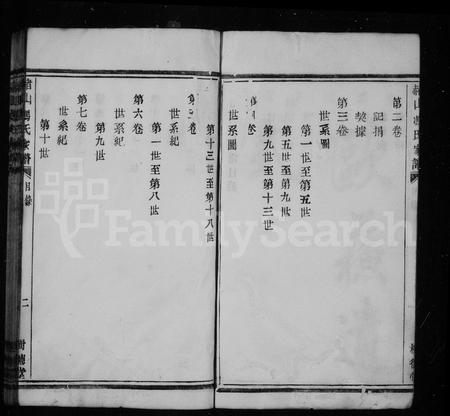 第二卷
記捐
契據
第三卷
世系圖
第一世至第五世
第五世至第九世
第九世至第十三世
卷
世系圖
第十三世至第十八世
第 卷
世系紀
第一世至第八世
第六卷
世系紀
第九世
第七卷
世系紀
第十世
山馮氏家譜
目卷
二
樹德堂
FamilySearch